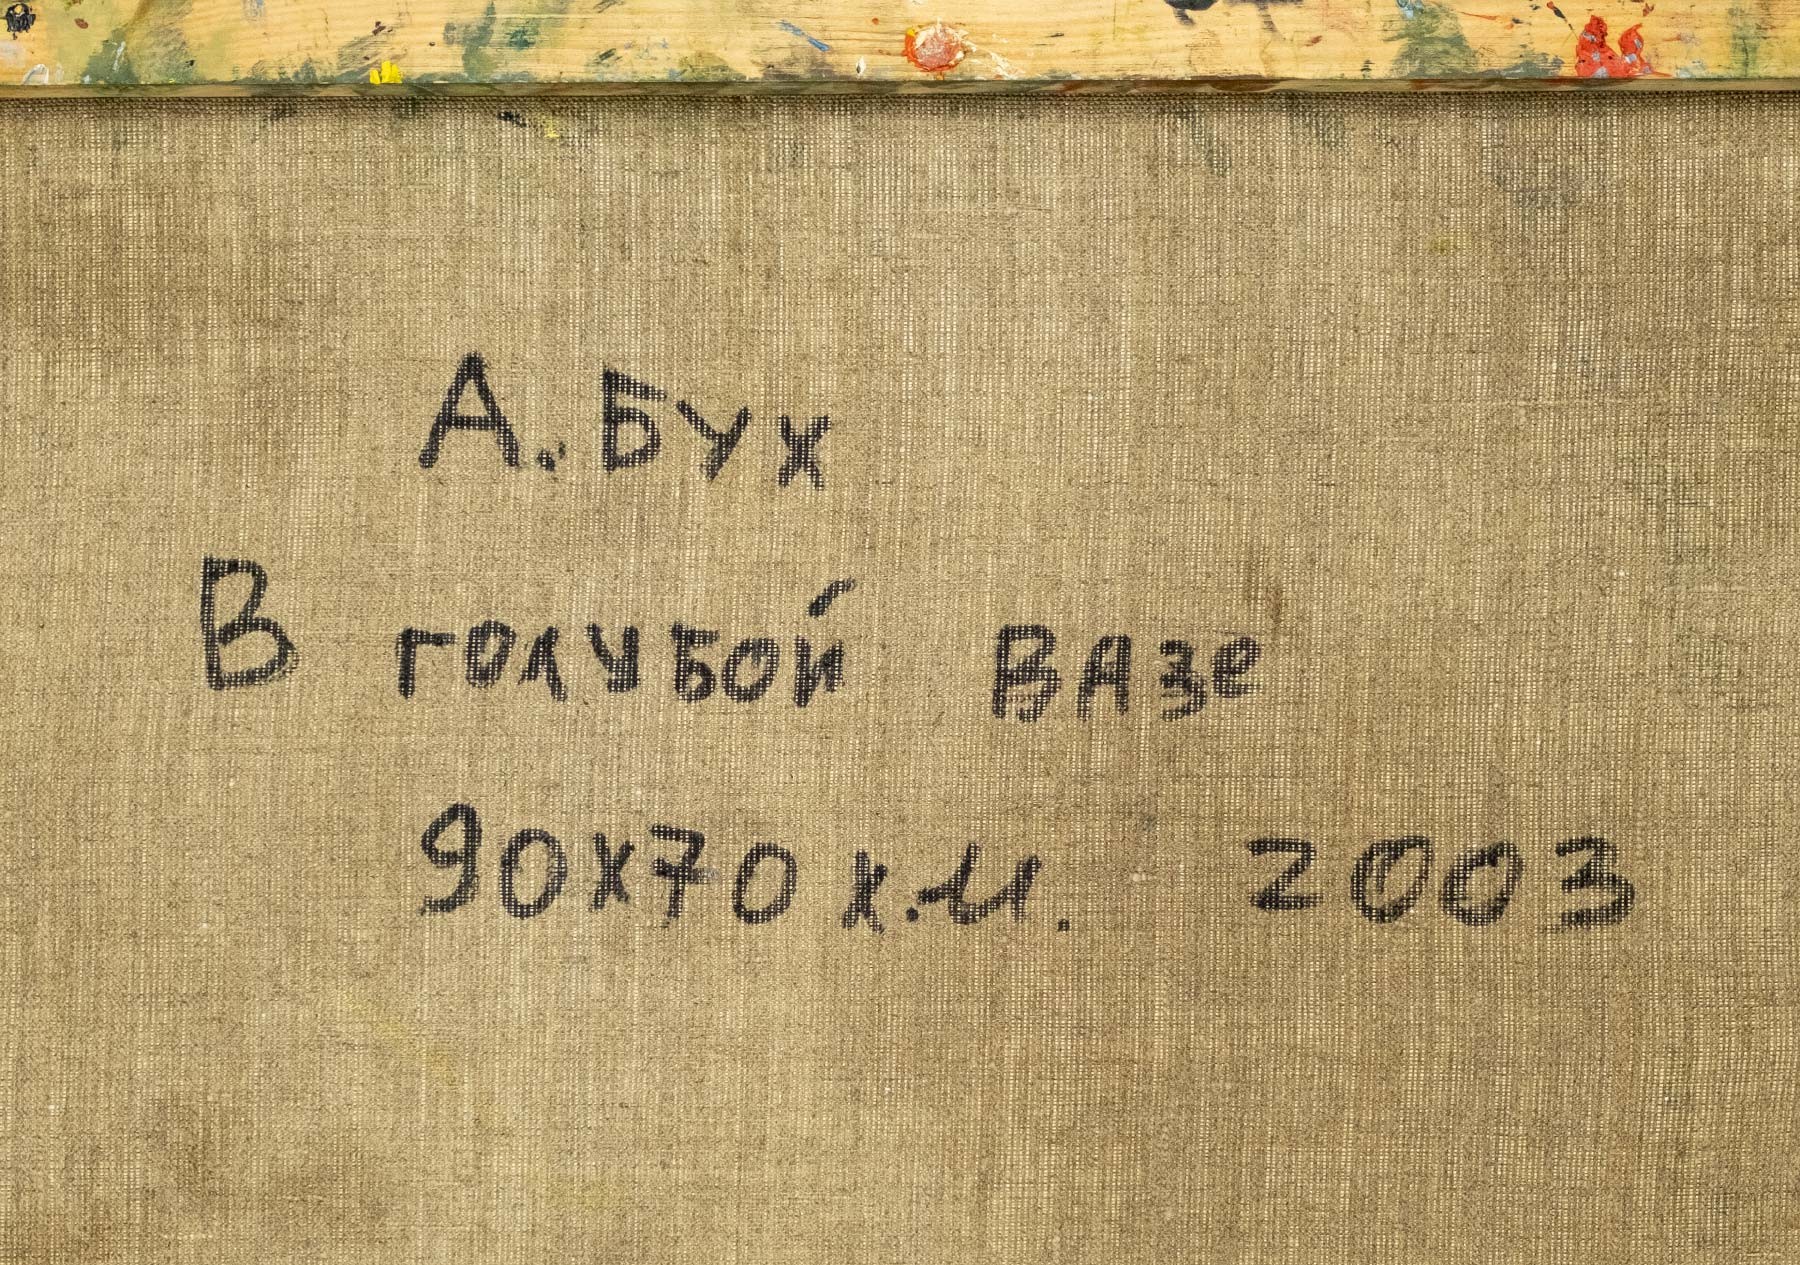 А. Бух
В голубой вазе
90х70 х.м. 2003